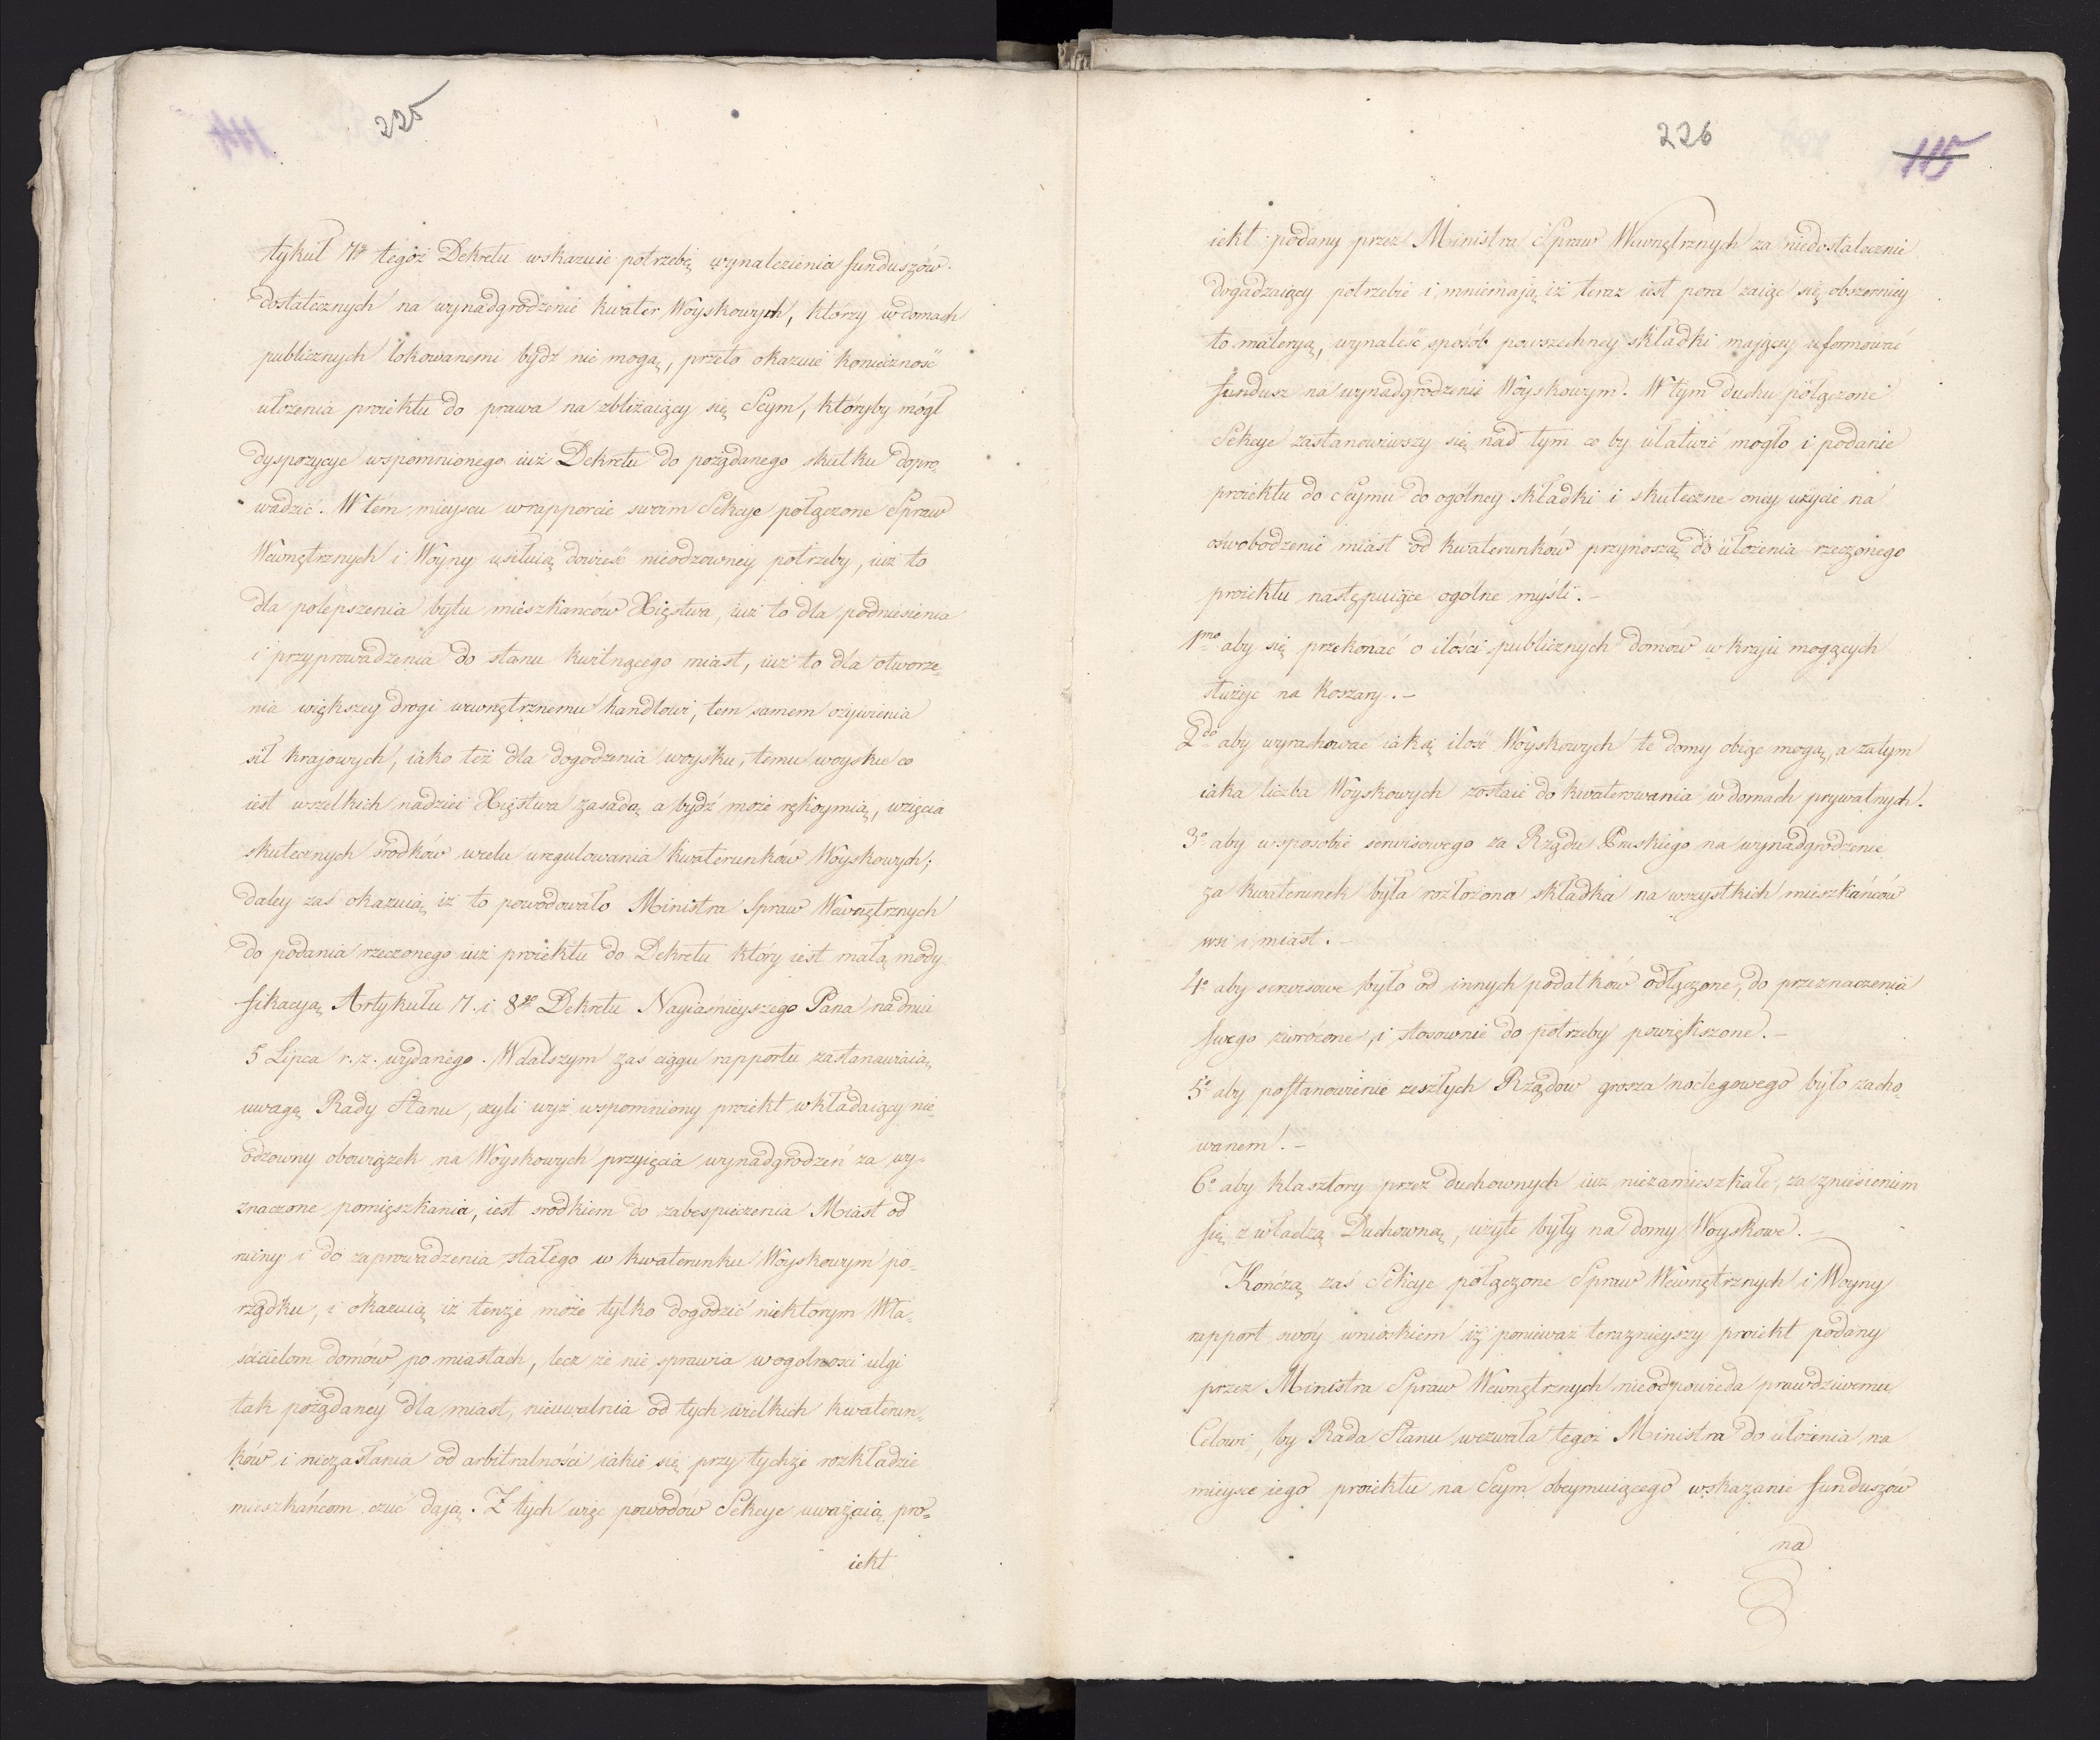 225
tykuł 7y tegoż Dekretu wskazuie potrzebę wynalezienia funduszów
dostatecznych na wynadgrodzenie kwater Woyskowych, którzy w domach
publicznych lokowanemi bydź nie mogą, przeto okazuie konieczność
ułożenia proiektu do prawa na zbliżaiący się Seym, któryby mógł
dyspozycye wspomnionego iuż Dekretu do pożądanego skutku dopro-
wadzić. W tém mieyscu w rapporcie swoim Sekcye połączone Spraw
Wewnętrznych i Woyny usiłuią dowieść nieodzowney potrzeby, iuż to
dla polepszenia bytu mieszkanców Xięstwa, iuż to dla podniesienia
i przyprowadzenia do stanu kwitnącego miast, iuż to dla otworze-
nia większey drogi wewnętrznemu handlowi, tem samem ożywienia
sił krajowych, iako też dla dogodzenia woysku, temu woysku co
iest wszelkich nadziei Xięstwa zasadą a bydź może rękoymią, wzięcia
skutecznych srodków w celu uregulowania kwaterunków Woyskowych;
daley zaś okazuią iż to powodowało Ministra Spraw Wewnętrznych
do podania rzeczonego iuż proiektu do Dekretu który iest małą mody-
fikacyą Artykułu 7. i 8go Dekretu Nayiaśnieyszego Pana na dniu
5 Lipca r. z. wydanego. W dalszym zaś ciągu rapportu zastanawiaią
uwagę Rady Stanu, czyli wyż wspomniony proiekt wkładaiący nie-
odzowny obowiązek na Woyskowych przyięcia wynadgrodzeń za wy-
znaczone pomięszkania, iest srodkiem do zabespieczenia Miast od
ruiny i do zaprowadzenia stałego w kwaterunku Woyskowym po-
rządku, i okazuią iż tenże może tylko dogodzić niektorym Wła-
ścicielom domów po miastach, lecz że nie sprawia w ogolności ulgi
tak pożądaney dla miast, nieuwalnia od tych wielkich kwaterun-
ków i niezasłania od arbitralności iakie się przy tychże rozkładzie
mieszkańcom czuć dają. Z tych więc powodów Sekcye uważaią pro-
iekt
226
115
iekt podany przez Ministra Spraw Wewnętrznych za niedostatecznie
dogadzaiący potrzebie i mniemają iż teraz iest pora zaiąć się obszerniey
to materyą, wynaleść sposób powszechney składki maiącey uformować
fundusz na wynadgrodzenie Woyskowym. W tym duchu połączone
Sekcye zastanowiwszy się nad tym co by ułatwić mogło i podanie
proiektu do Seymu do ogólney składki i skuteczne oney użycie na
oswobodzenie miast od kwaterunków przynoszą do ułożenia rzeczonego
proiektu następuiące ogólne myśli. –
1mo aby się przekonać o ilości publicznych domów w kraju mogących
służyć na Koszary. –
2do aby wyrachować iaką ilość Woyskowych te domy obiąć mogą, a zatym
iaka liczba Woyskowych zostaie do kwaterowania w domach prywatnych.
3o aby w sposobie serwisowego za Rządu Pruskiego na wynadgrodzenie
za kwaterunek była rozłożona składka na wszystkich mieszkańców
wsi i miast. –
4o aby serwisowe było od innych podatków odłączone, do przeznaczenia
swego zwrócone, i stosownie do potrzeby powiększone. –
5o aby postanowienie zeszłych Rządów grosza noclegowego było zacho-
wanem. –
6o aby klasztory przez duchownych iuż niezamieszkałe, za zniesieniem
się z władzą Duchowną, użyte były na domy Woyskowe. –
Kończą zaś Sekcye połączone Spraw Wewnętrznych i Woyny
rapport swóy wnioskiem iż ponieważ teraznieyszy proiekt podany
przez Ministra Spraw Wewnętrznych nieodpowieda prawdziwemu
Celowi, by Rada Stanu wezwała tegoż Ministra do ułożenia na
mieysce iego proiektu na Seym obeymuiącego wskazanie funduszów
na